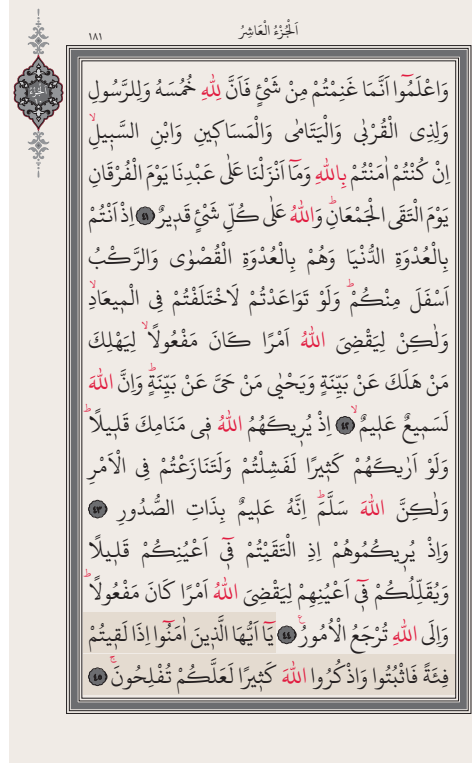 اَلْجُزْءُ الْعَاشِرُ
١٨١
اَلْجُزْءُ
وَاعْلَمُٓوا اَنَّمَا غَنِمْتُمْ مِنْ شَيْءٍ فَاَنَّ لِلّٰهِ خُمُسَهُ وَلِلرَّسُولِ
وَلِذِي الْقُرْبٰى وَالْيَتَامٰى وَالْمَسَاك۪ينِ وَابْنِ السَّب۪يلِۙ
اِنْ كُنْتُمْ اٰمَنْتُمْ بِاللّٰهِ وَمَٓا اَنْزَلْنَا عَلٰى عَبْدِنَا يَوْمَ الْفُرْقَانِ
يَوْمَ الْتَقَى الْجَمْعَانِۜ وَاللّٰهُ عَلٰى كُلِّ شَيْءٍ قَد۪يرٌ ﴿٤١﴾ اِذْ اَنْتُمْ
بِالْعُدْوَةِ الدُّنْيَا وَهُمْ بِالْعُدْوَةِ الْقُصْوٰى وَالرَّكْبُ
اَسْفَلَ مِنْكُمْۜ وَلَوْ تَوَاعَدْتُمْ لَاخْتَلَفْتُمْ فِي الْم۪يعَادِۙ
وَلٰكِنْ لِيَقْضِيَ اللّٰهُ اَمْرًا كَانَ مَفْعُولًاۙ لِيَهْلِكَ
مَنْ هَلَكَ عَنْ بَيِّنَةٍ وَيَحْيٰى مَنْ حَيَّ عَنْ بَيِّنَةٍۜ وَاِنَّ اللّٰهَ
لَسَم۪يعٌ عَل۪يمٌۙ ﴿٤٢﴾ اِذْ يُر۪يكَهُمُ اللّٰهُ ف۪ي مَنَامِكَ قَل۪يلًاۜ
وَلَوْ اَرٰيكَهُمْ كَث۪يرًا لَفَشِلْتُمْ وَلَتَنَازَعْتُمْ فِي الْاَمْرِ
وَلٰكِنَّ اللّٰهَ سَلَّمَۜ اِنَّهُ عَل۪يمٌ بِذَاتِ الصُّدُورِ ﴿٤٣﴾
وَاِذْ يُر۪يكُمُوهُمْ اِذِ الْتَقَيْتُمْ ف۪ٓي اَعْيُنِكُمْ قَل۪يلًا
وَيُقَلِّلُكُمْ ف۪ٓي اَعْيُنِهِمْ لِيَقْضِيَ اللّٰهُ اَمْرًا كَانَ مَفْعُولًاۜ
وَاِلَى اللّٰهِ تُرْجَعُ الْاُمُورُ۟ ﴿٤٤﴾ يَٓا اَيُّهَا الَّذ۪ينَ اٰمَنُٓوا اِذَا لَق۪يتُمْ
فِئَةً فَاثْبُتُوا وَاذْكُرُوا اللّٰهَ كَث۪يرًا لَعَلَّكُمْ تُفْلِحُونَۚ ﴿٤٥﴾